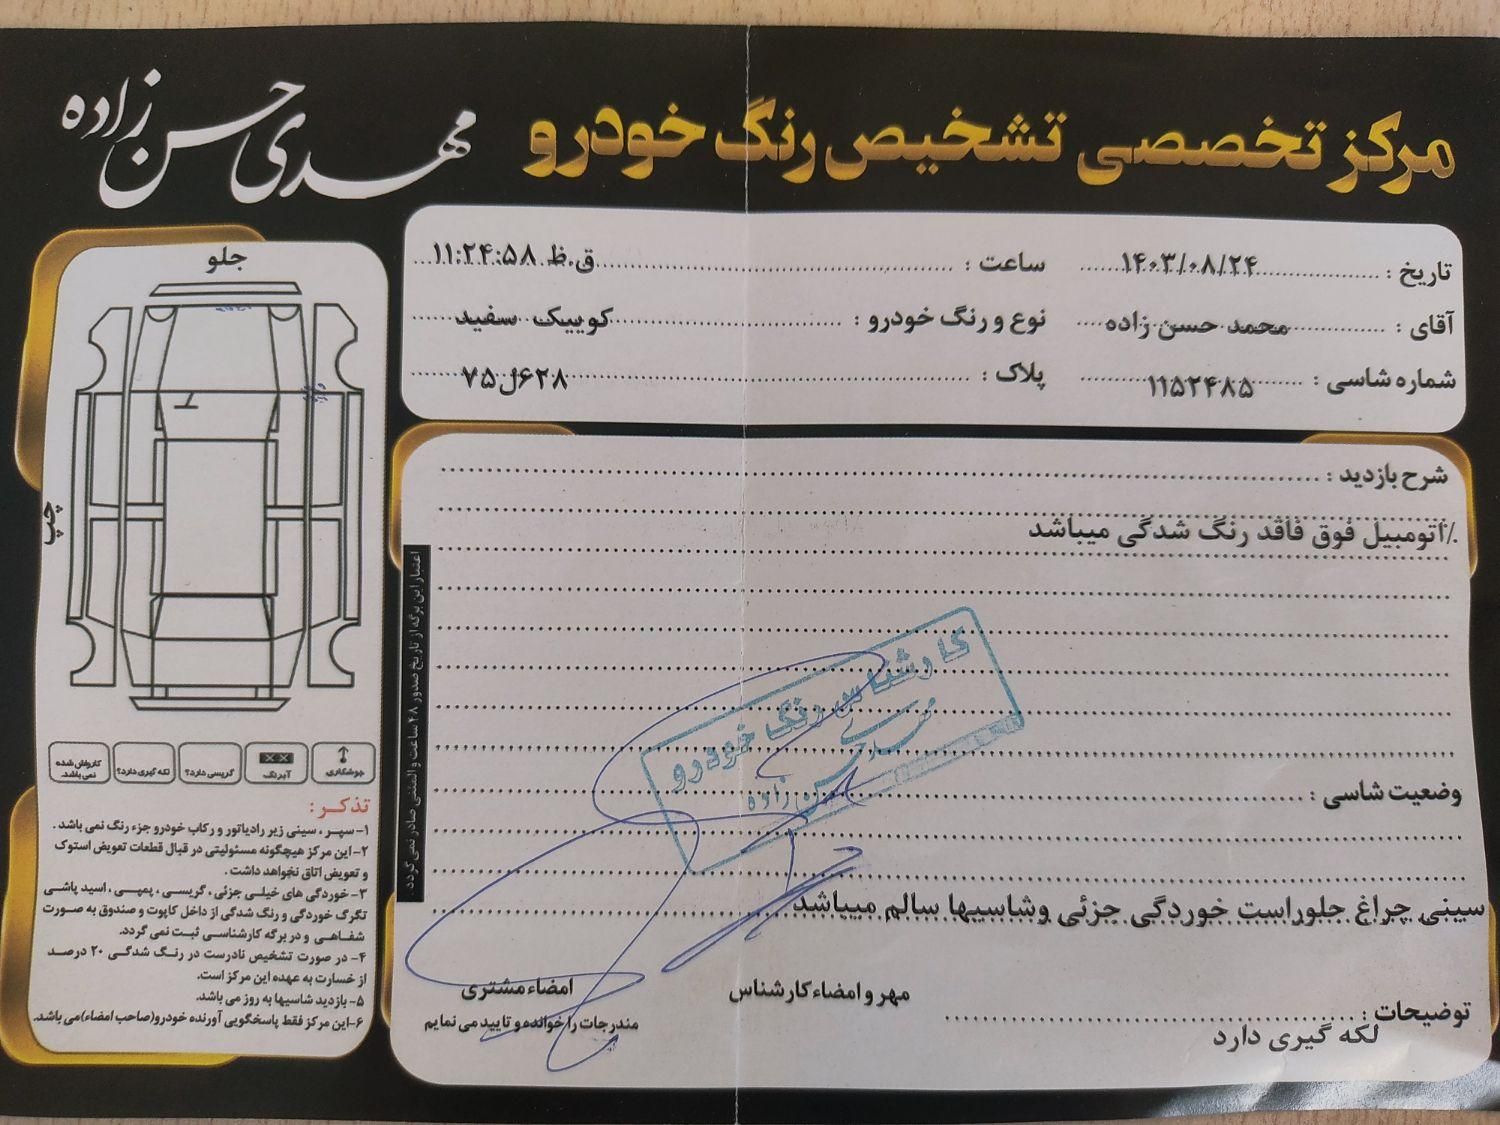 مرکز تخصصی تشخیص رنگ خودرو
مهدی حسن زاده
تاریخ : ۱۴۰۳/۰۸/۲۴
ساعت : ۱۱:۲۴:۵۸ ق.ظ
آقای : محمد حسن زاده
نوع و رنگ خودرو : کوییک سفید
شماره شاسی : ۱۱۵۲۴۸۵
پلاک : ۶۲۸ل۷۵
شرح بازدید :
٪اتومبیل فوق فاقد رنگ شدگی میباشد
کارشناس رنگ خودرو
مهدی حسن زاده
وضعیت شاسی :
سینی چراغ جلوراست خوردگی جزئی وشاسیها سالم میباشد
مهر و امضاء کارشناس
امضاء مشتری
مندرجات را خوانده و تایید می نمایم
توضیحات :
لکه گیری دارد
اعتبار این برگه از تاریخ صدور ۴۸ ساعت و المثنی صادر نمی گردد
جلو
چپ
جوشکاری
XX
آبرنگ
گریسی دارد؟
لکه گیری دارد؟
کارواش شده نمی باشد.
تذکر :
۱- سپر ، سینی زیر رادیاتور و رکاب خودرو جزء رنگ نمی باشد .
۲- این مرکز هیچگونه مسئولیتی در قبال قطعات تعویض استوک
و تعویض اتاق نخواهد داشت .
۳- خوردگی های خیلی جزئی ، گریسی ، پمپی ، اسید پاشی
تگرگ خوردگی و رنگ شدگی از داخل کاپوت و صندوق به صورت
شفاهی و در برگه کارشناسی ثبت نمی گردد.
۴- در صورت تشخیص نادرست در رنگ شدگی ۲۰ درصد
از خسارت به عهده این مرکز است.
۵- بازدید شاسیها به روز می باشد.
۶- این مرکز فقط پاسخگویی آورنده خودرو(صاحب امضاء)می باشد.